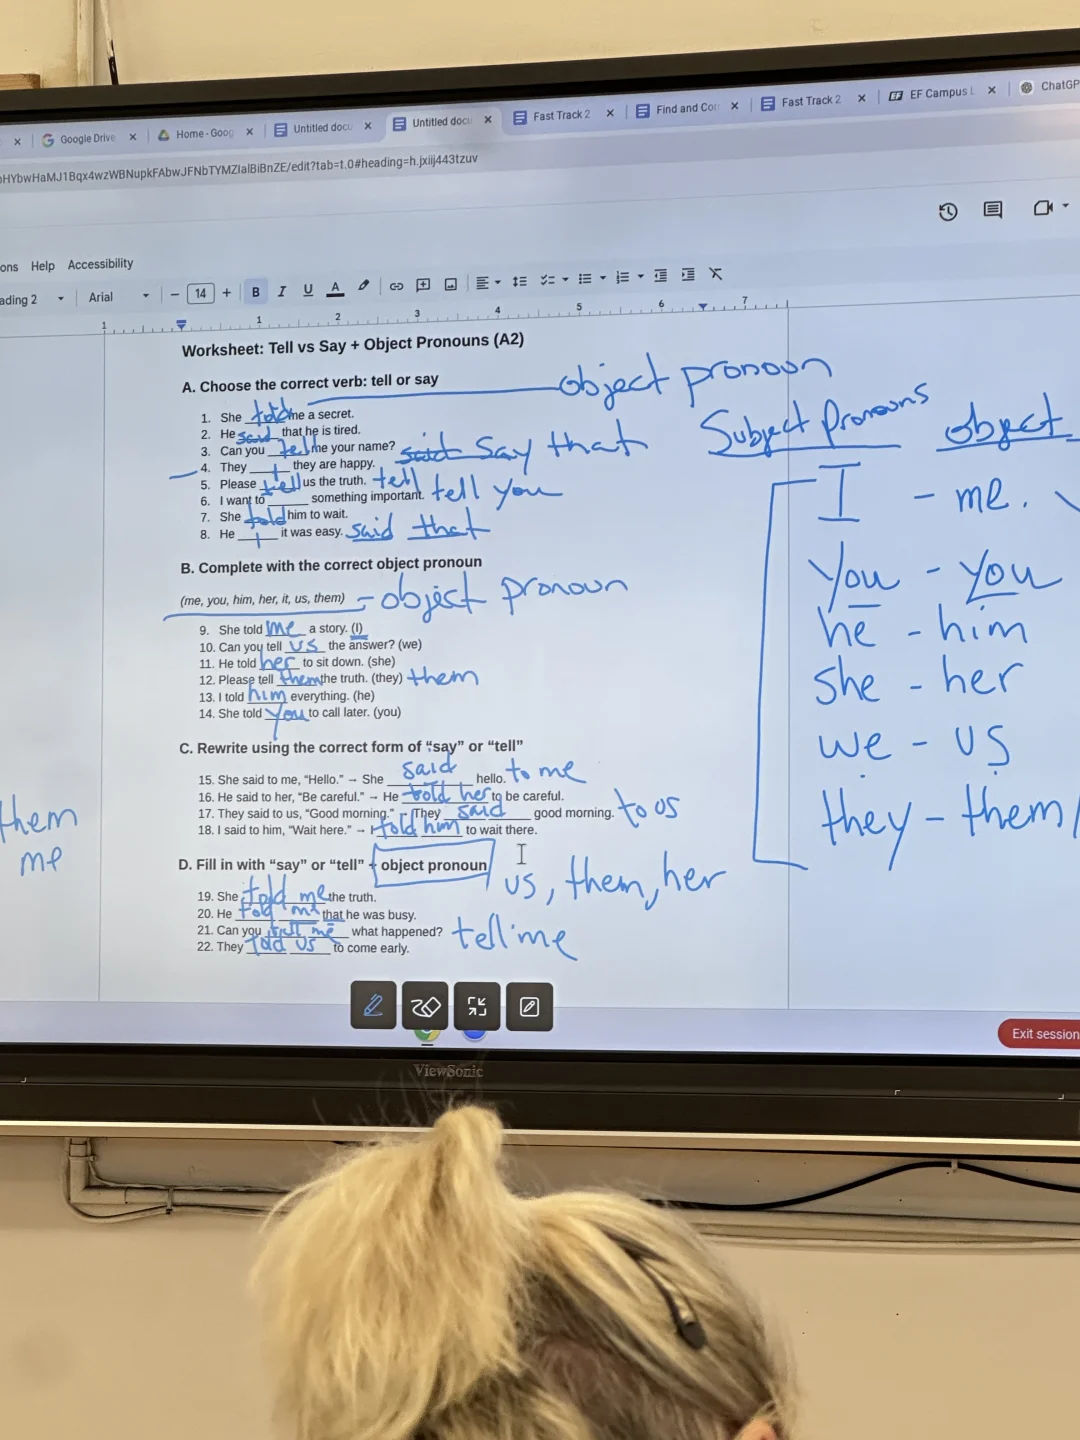 Google Drive
Home - Goog
Untitled docu
Untitled docu
Fast Track 2
Find and Cor
Fast Track 2
EF Campus L
ChatGP
HYbwHaMJ1Bqx4wzWBNupkFAbwJFNbTYMZIalBiBnZE/edit?tab=t.0#heading=h.jxiij443tzuv
ons Help Accessibility
ading 2 Arial − 14 + B I U A
1 1 2 3 4 5 6 7
Worksheet: Tell vs Say + Object Pronouns (A2)
A. Choose the correct verb: tell or say object pronoun
1. She told me a secret.
2. He said that he is tired.
3. Can you tell me your name? said say that
4. They ____ they are happy.
5. Please tell us the truth. tell
6. I want to ____ something important. tell you
7. She told him to wait.
8. He ____ it was easy. said that
B. Complete with the correct object pronoun
(me, you, him, her, it, us, them) - object pronoun
9. She told me a story. (I)
10. Can you tell us the answer? (we)
11. He told her to sit down. (she)
12. Please tell them the truth. (they) them
13. I told him everything. (he)
14. She told you to call later. (you)
C. Rewrite using the correct form of “say” or “tell”
15. She said to me, “Hello.” → She said hello. to me
16. He said to her, “Be careful.” → He told her to be careful.
17. They said to us, “Good morning.” → They said good morning. to us
18. I said to him, “Wait here.” → I told him to wait there.
D. Fill in with “say” or “tell” + object pronoun
us, them, her
19. She told me the truth.
20. He told me that he was busy.
21. Can you tell me what happened? tell me
22. They told us to come early.
Subject Pronouns object
I - me.
you - you
he - him
she - her
we - us
they - them
them
me
Exit session
ViewSonic